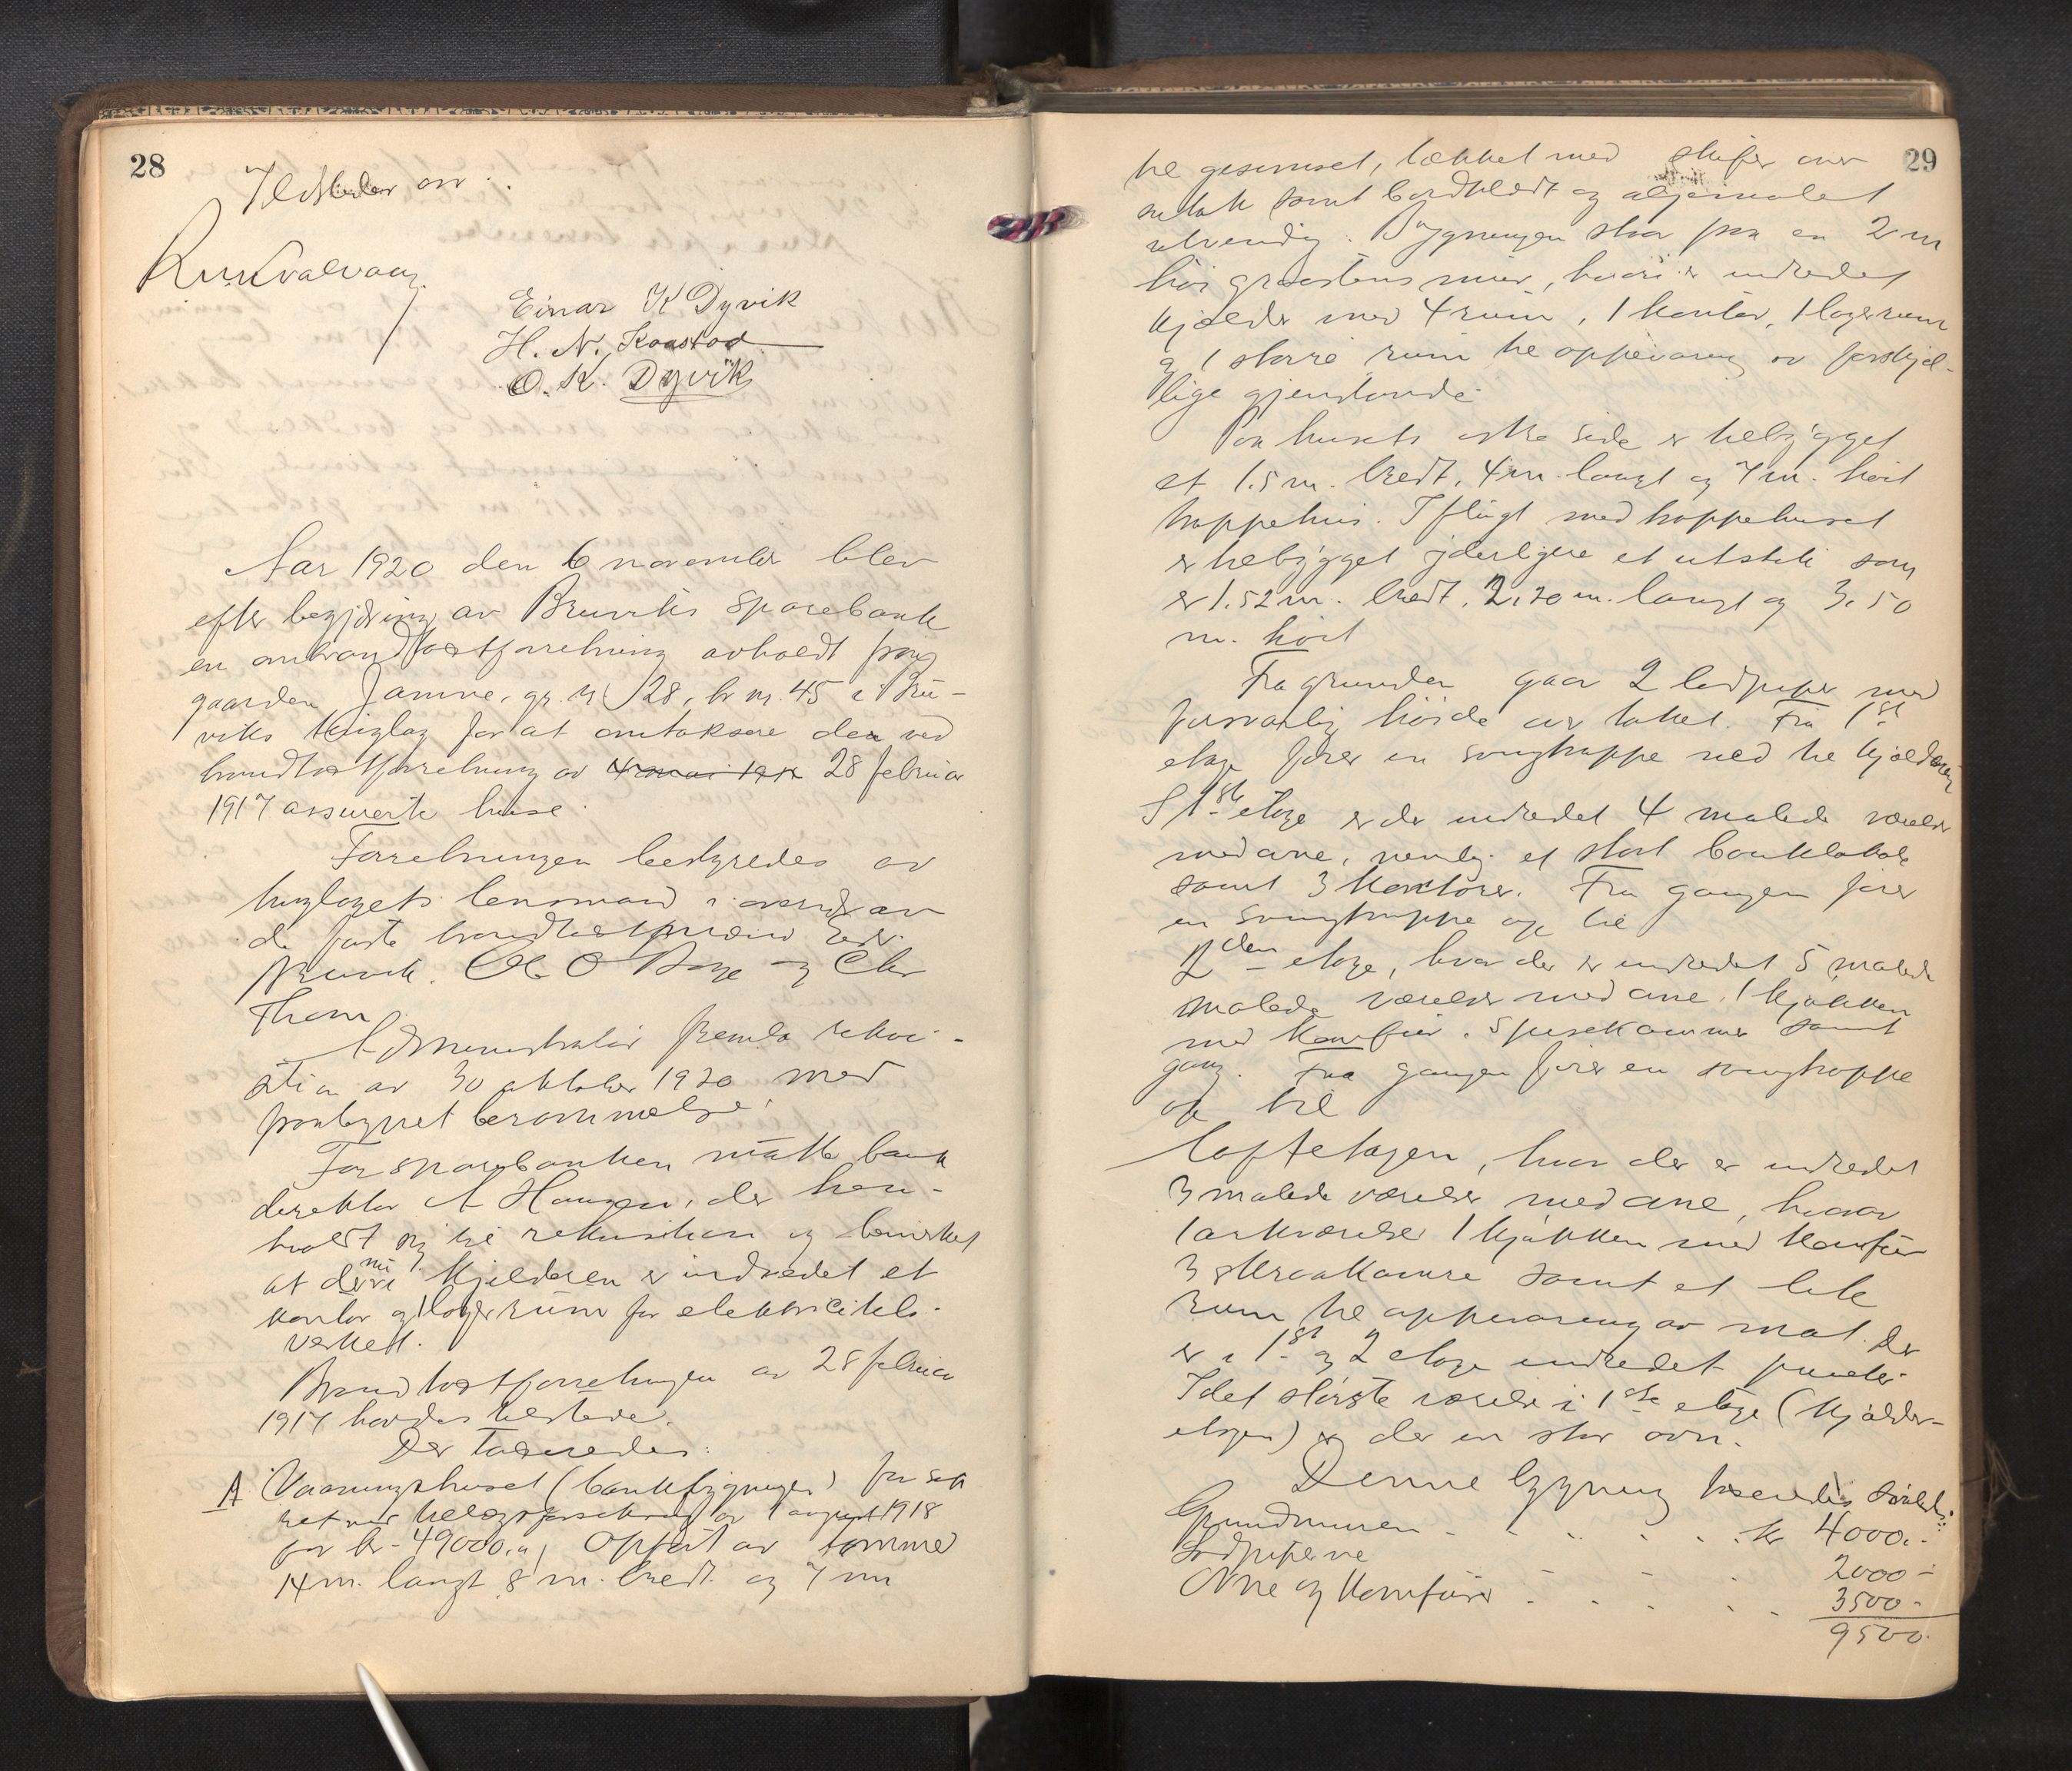 28
Ildsteder ov.
Einar K Dyvik
H. N. Kaastad
O. K. Dyvik
Aar 1920 den 6 november blev
efter begjæring av Bruviks sparebank
en ombrandtakstforretning avholdt paa
gaarden Jamne, gr. nr 28, br nr. 45 i Bru-
viks tinglag for at omtaksere den ved
brandtakstforretning av 28 februar
1917 assurerte huse.
Forretningen bestyredes av
tinglagets lensmand i overvær av
de faste brandtakstmænd
Bruvik. Ole O og Chr
Tham
Administrator fremla rekvi-
sition av 30 oktober 1920 med
paategnet berammelse.
For sparebanken møtte bank
direktør A Haugen, der hen-
holdt sig til rekvisition og bemerket
at der nu i kjelderen er indredet et
kontor og 1 lagerrum for elektricitets-
verket.
Brandtakstforretningen av 28 februar
1917 havdes tilstede.
Der takseredes:
A Vaaningshuset (bankbygningen) forsik
ret ved tillægsforretning av 1 august 1918
for kr - 49000,- Opført av tømmer
14 m. langt 8 m. bredt og 7 m
29
til gesimset, tækket med skifer over
sutak samt bordklædt og oljemalet
utvendig. Bygningen staar paa en 2 m
høi graastensmur, hvori er indredet
kjælder med 4 rum, 1 kontor, 1 lagerrum
og 1 større rum til oppevaring av forskjel-
lige gjenstande.
Paa husets østre side er tilbygget
et 1.5 m. bredt, 4 m. langt og 7 m. høit
trappehus. I flugt med trappehuset
er tilbygget yderligere et utstik som
er 1.52 m. bredt, 2,20 m. langt og 3.50
m. høit
Fra grunden gaar 2 lodpiper med
forsvarlig høide over taket. Fra 1ste
etage fører en svingtrappe ned til kjælderen
I 1ste etage er der indredet 4 malede værelser
med ovne, nemlig et stort banklokale
samt 3 kontorer. Fra gangen fører
en svingtrappe op til
2den etage, hvor der er indredet 5 malede
malede værelser med ovne, 1 kjøkken
med komfur, spisekammer samt
gang. Fra gangen fører en svingtrappe
op til
loftetagen, hvor der er indredet
3 malede værelser med ovne, hvorav
1 arkværelse 1 kjøkken med komfur
3 skraakamre samt et lite
rum til oppevaring av mat. Der
er i 1ste og 2 etage indredet
I det største værelse i 1ste etage (kjælder-
etagen) er der en stor ovn.
Denne bygning saaledes:
Grundmuren - - - - kr 4000.-
Lodpiperne 2000 -
Ovne og komfurer - - - - 3500 -
9500.